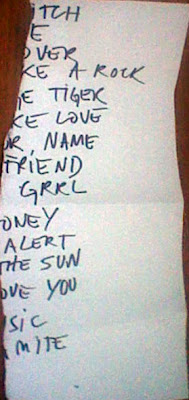 ITCH
E
OVER
KE A ROCK
GE TIGER
KE LOVE
OR NAME
FRIEND
GRRL
ONEY
ALERT
THE SUN
OVE YOU
SIC
MITE